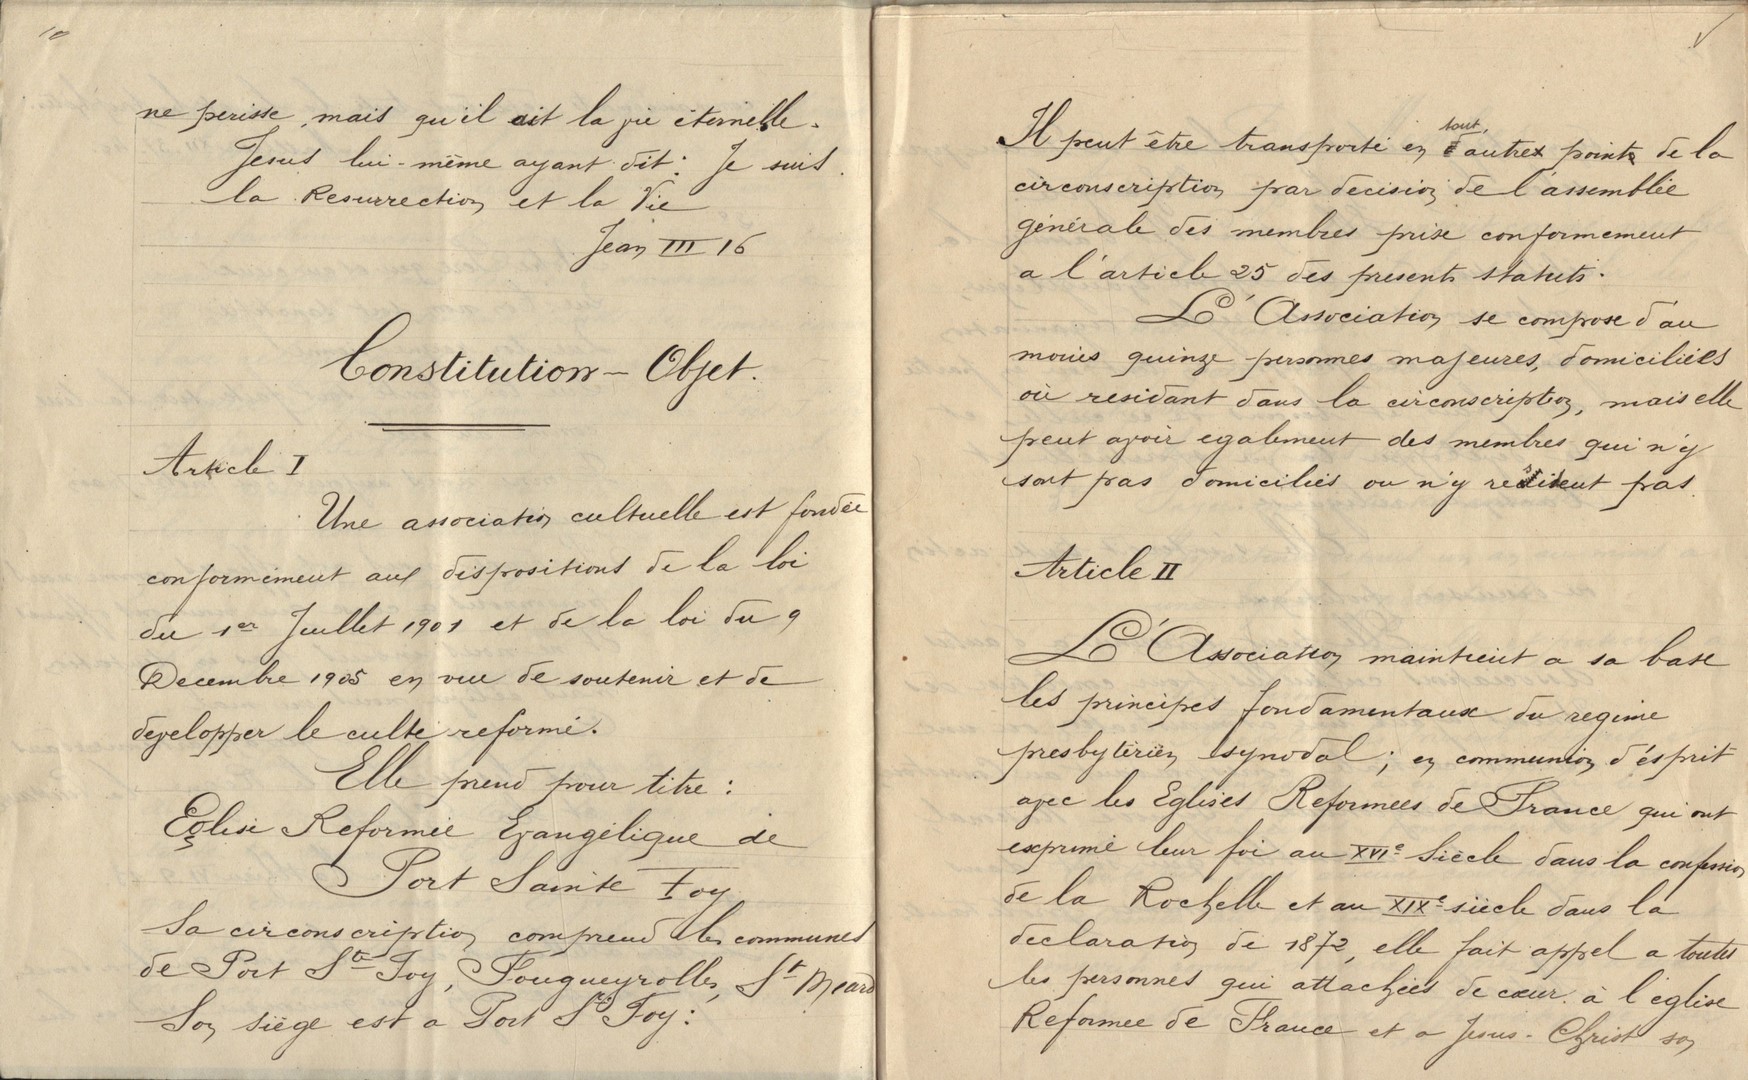 ne perisse, mais qu'il ait la vie éternelle.
Jesus lui-même ayant dit: Je suis
la Resurrection et la Vie
Jean III 16
Constitution - Objet.
Article I
Une association cultuelle est fondée
conformément aux dispositions de la loi
du 1er Juillet 1901 et de la loi du 9
Decembre 1905 en vue de soutenir et de
developper le culte reformé.
Elle prend pour titre :
Eglise Reformée Evangélique de
Port Sainte Foy
Sa circonscription comprend les communes
de Port Ste Foy, Fougueyrolles, St Meard
Son siège est a Port Ste Foy:
Il peut être transporté en tout autre point de la
circonscription par decision de l'assemblée
générale des membres prise conformement
a l'article 25 des presents statuts.
L'Association se compose d'au
moins quinze personnes majeures, domiciliées
où residant dans la circonscription, mais elle
peut avoir egalement des membres qui n'y
sont pas domiciliés ou n'y resident pas.
Article II
L'Association maintient a sa base
les principes fondamentaux du regime
presbytérien synodal; en communion d'ésprit
avec les Eglises Reformées de France qui ont
exprimé leur foi au XVIe Siècle dans la confession
de la Rochelle et au XIXe siècle dans la
declaration de 1872, elle fait appel a toutes
les personnes qui attachées de cœur à l'église
Reformee de France et a Jesus-Christ son